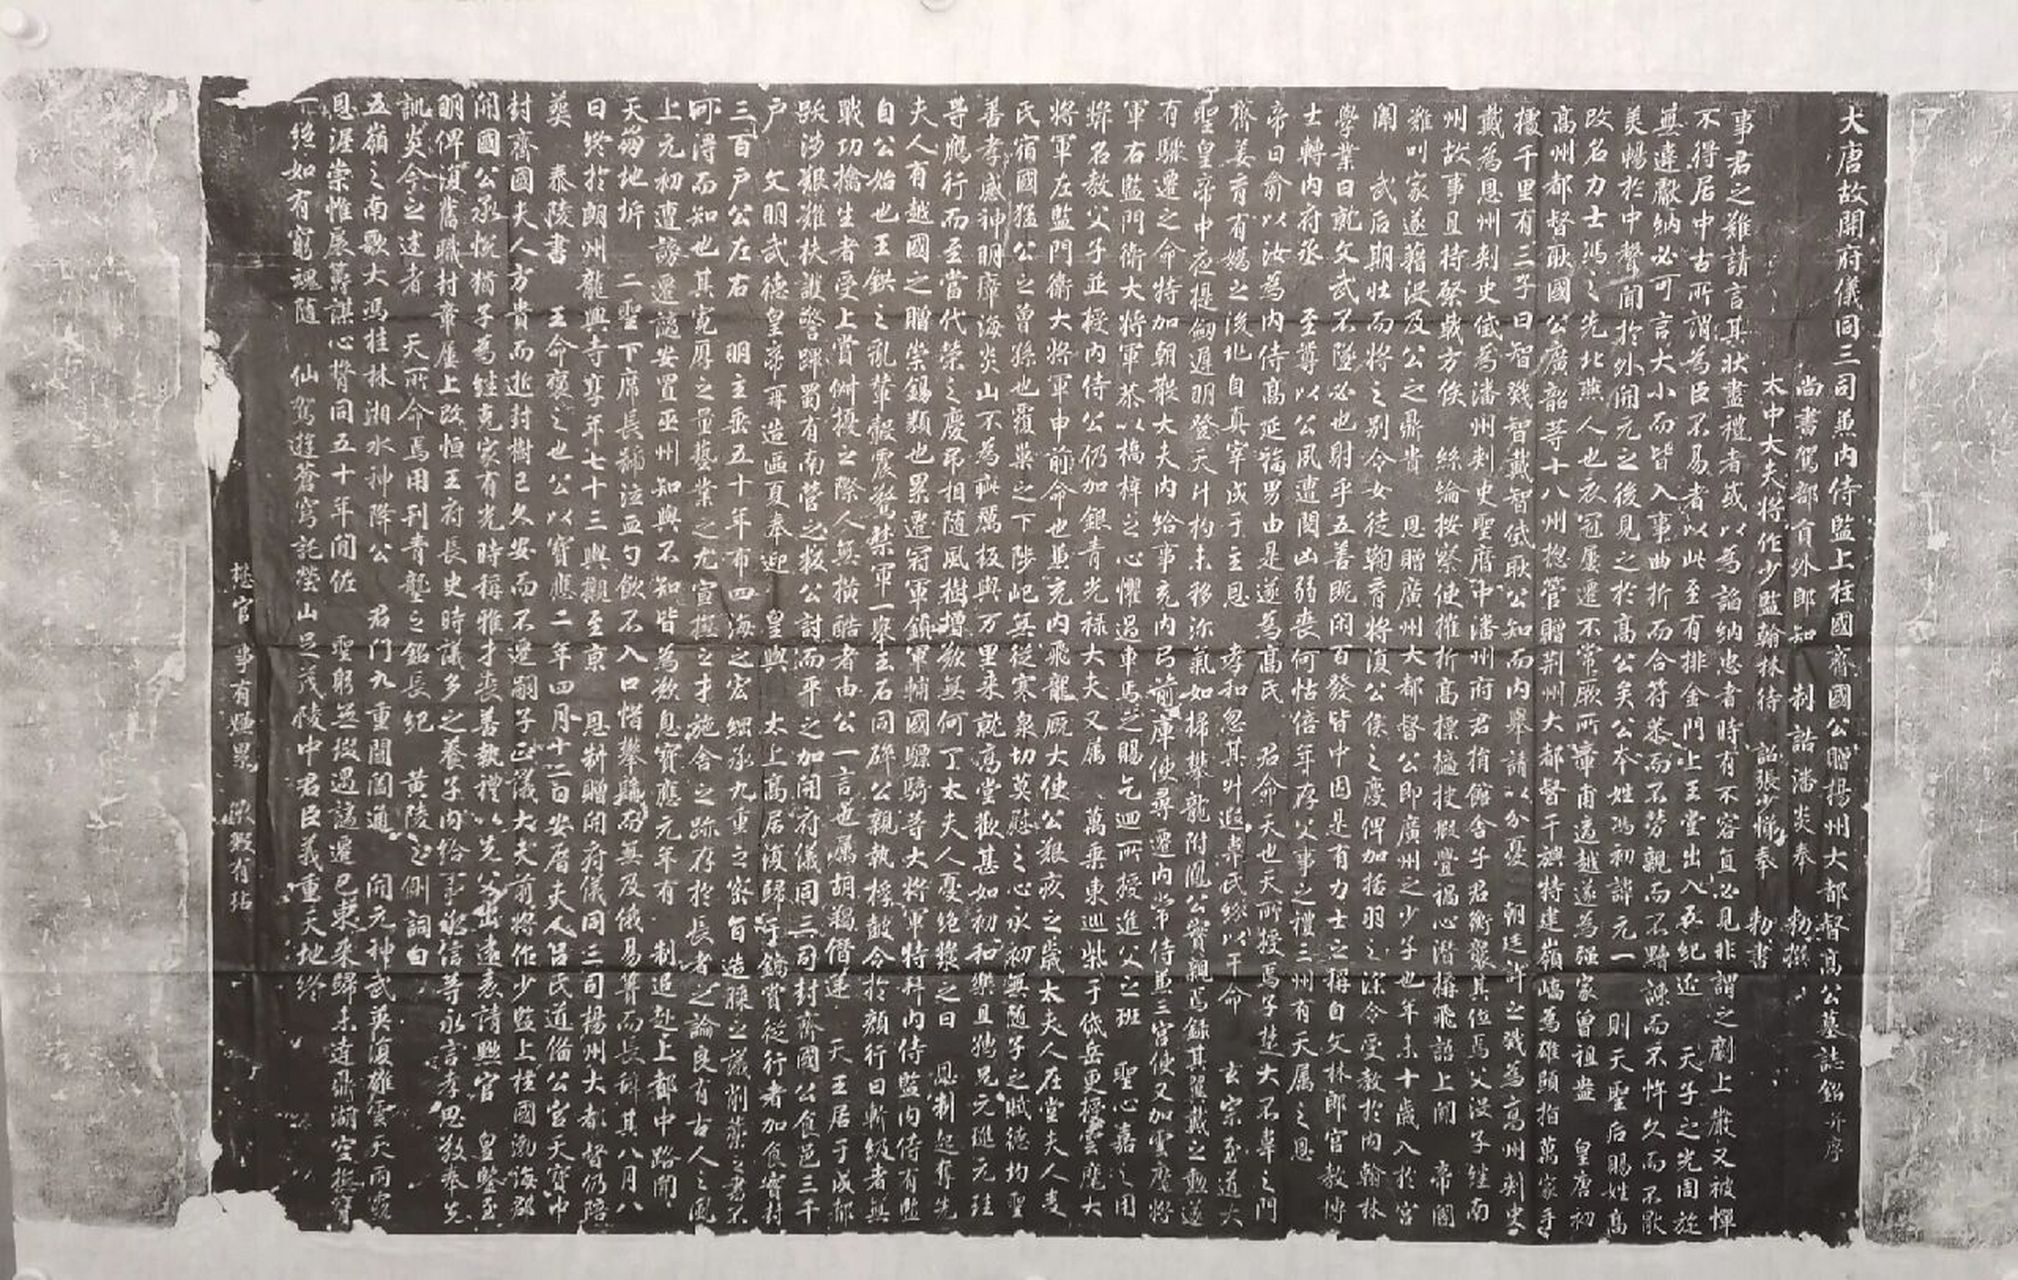 大唐故開府儀同三司兼內侍監上柱國齊國公贈揚州大都督高公墓誌銘并序
尚書駕部員外郎知 制誥潘炎奉 勅撰
太中大夫將作少監翰林待 詔張少悌奉 勅書
事君之難請言其狀盡禮者或以為諂納忠者時有不容直必見非謂之劘上嚴又被憚
不得居中古所謂為臣不易者以此至有排金門上玉堂出入五紀近 天子之光周旋
無違獻納必可言大小而皆入事曲折而合符恭而不勞親而不黷諫而不忤久而不厭
美暢於中聲聞於外開元之後見之於高公矣公本姓馮初諱元一 則天聖后賜姓高
改名力士馮之先北燕人也衣冠屢遷不常厥所章甫適越遂為強家曾祖盎 皇唐初
高州都督耿國公廣韶等十八州總管贈荊州大都督干旟特建嶺嶠為雄頤指萬家手
據千里有三子曰智戣智戴智玳耿公知而內舉請以分憂 朝廷許之戣為高州刺史
戴為恩州刺史玳為潘州刺史聖曆中潘州府君捐館舍子君衡襲其位焉父沒子繼南
州故事且持棨戟方俟 絲綸按察使摧折高標擿抉瑕舋禍心潛搆飛語上聞 帝閽
難叫家遂藉沒及公之鼎貴 恩贈廣州大都督公即廣州之少子也年未十歲入於宮
闈 武后期壯而將之別令女徒鞠育將復公侯之慶俾加括羽之深令受教於內翰林
學業日就文武不墜必也射乎五善既閑百發皆中因是有力士之稱自文林郎官教博
士轉內府丞 至尊以公夙遭閔凶弱喪何怙倍年存父事之禮三州有天屬之恩
帝曰俞以汝為內侍高延福男由是遂為高氏 君命天也天所授焉孝楚大不辜之門
齊姜育有媯之後兆自真宰成于主恩 孝和忽其升遐韋氏紛以干命 玄宗至道大
聖皇帝中夜提劒遲明登天斗杓未移沴氣如掃攀龍附鳳公實親焉錄其翼戴之勳遂
有驟遷之命特加朝散大夫內給事充內弓箭庫使尋遷內常侍兼三宮使又加雲麾將
軍右監門衛大將軍恭以橋梓之心懼過車馬之賜乞迴所授進父之班 聖心嘉之用
獎名教父子並授內侍公仍加銀青光祿大夫又屬 萬乘東巡柴于岱岳更授雲麾大
將軍左監門衛大將軍申前命也兼充內飛龍厩大使公艱疚之歲太夫人在堂夫人麦
氏宿國猛公之曾孫也覆巢之下陟屺無從寒泉切莫慰之心永初無隨子之賦德均聖
善孝感神明瘴海炎山不為疵癘板輿万里來就高堂歡甚如初和樂且孺兄元琎元珪
等鴈行而至當代榮之慶弔相隨風樹增歎無何丁太夫人憂絕漿之日 恩制起奪先
夫人有越國之贈崇錫類也累遷冠軍鎮軍輔國驃騎等大將軍特拜內侍監內侍有監
自公始也王鉷之亂輦轂震驚禁軍一舉玉石同碎公親執桴鼓令於顏行曰斬級者無
戰功擒生者受上賞倒攘之際人無橫酷者由公一言也屬胡羯僭逆 天王居于成都
跋涉艱難扶護警蹕蜀有南營之叛公討而平之加開府儀同三司封齊國公食邑三千
戶 文明武德皇帝再造區夏奉迎 皇輿 太上高居復歸于鎬賞從行者加食實封
三百戶公左右 明主垂五十年布四海之宏綱承九重之密旨 造膝之議削藁之書不
可得而知也其寬厚之量藝業之尤宣撫之才施舍之跡存於長者之論良有古人之風
上元初遭謗遷謫安置巫州知與不知皆為歎息寶應元年有 制追赴上都中路聞
天崩地坼 二聖下席長號泣血勺飲不入口惜攀髯而無及俄易簀而長辭其八月八
日終於朗州龍興寺享年七十三輿櫬至京 恩制贈開府儀同三司揚州大都督仍陪
葬 泰陵書 王命褒之也公以寶應二年四月十二日安厝夫人呂氏道備公宮天寶中
封齊國夫人方貴而逝封樹已久安而不遷嗣子正議大夫前將作少監上柱國渤海郡
開國公承悅猶子為繼克家有光時稱雅才喪善執禮以先父出遠表請黜官 皇鑒至
明俾復舊職封章屢上改恒王府長史時議多之養子內給事承信等永言孝思敬奉先
訓炎今之述者 天所命焉用刊青礱之銘長紀 黃陵之側詞曰
五嶺之南歌大馮桂林湘水神降公 君門九重閶闔通 開元神武英復雄雲天雨露
恩渥崇帷扆籌謀心膂同五十年間佐 聖躬並掇遇謫遷已東來歸未達鼎湖空撫膺
一絕如有窮魂隨 仙駕遊蒼穹託塋山足茂陵中君臣義重天地終